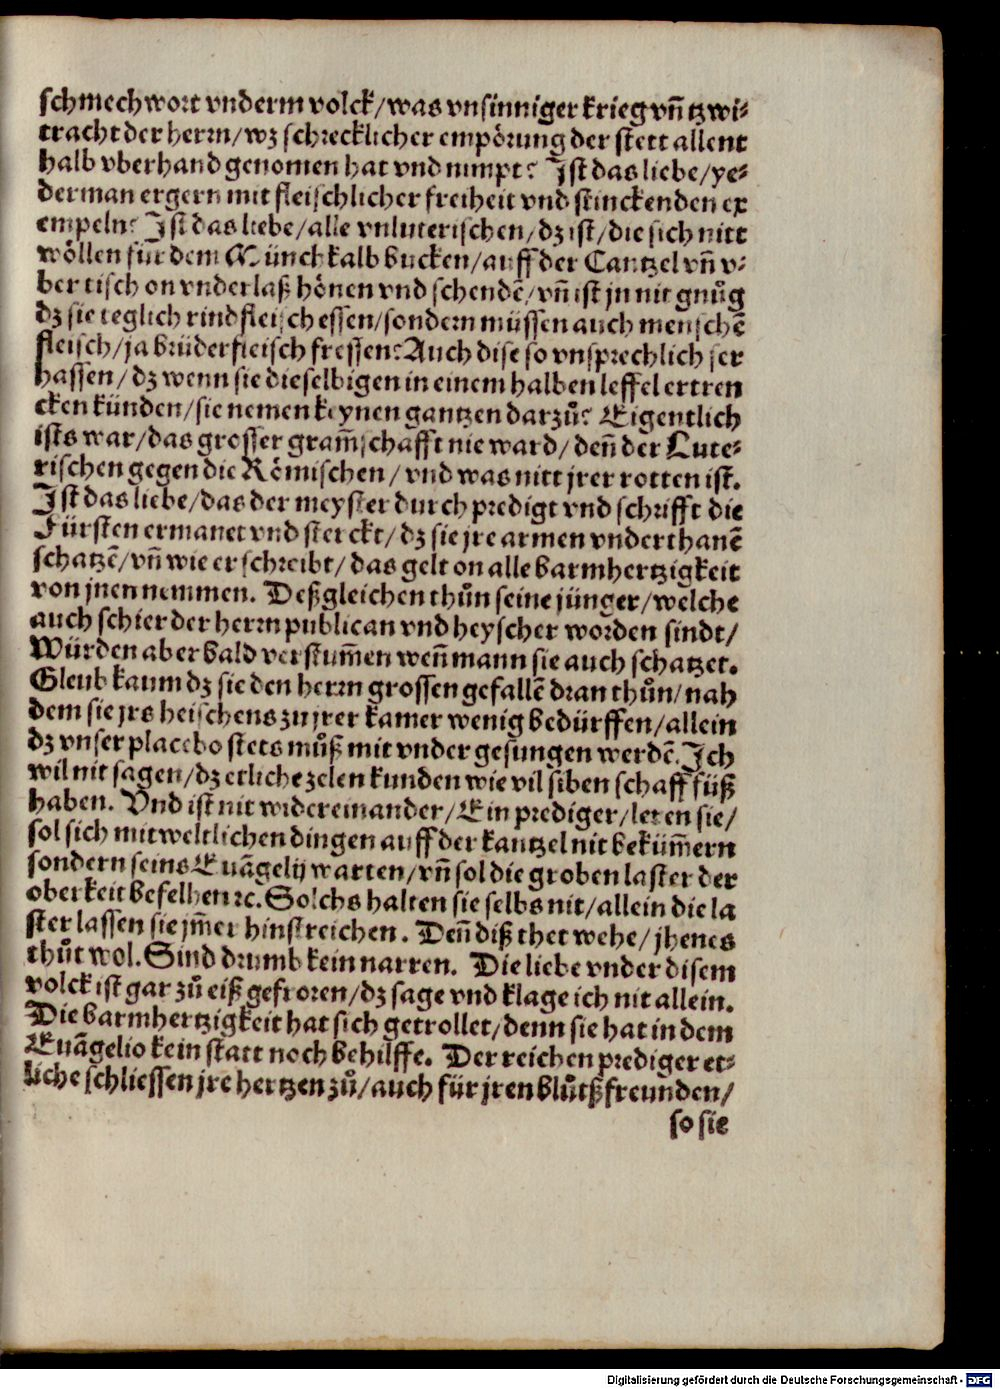 schmechwort vnderm volck/was vnsinniger krieg vñ tzwi-
tracht der herrn/wz schrecklicher empörung der stett allent
halb vberhand genomen hat vnd nimpt? Ist das liebe/ye-
derman ergern mit fleischlicher freiheit vnd stinckenden ex
empeln? Ist das liebe/alle vnluterischen/dz ist/die sich nitt
wöllen für dem Münchkalb bucken/auff der Cantzel vñ v-
ber tisch on vnderlaß hönen vnd schendē/vñ ist jn nit gnůg
dz sie teglich rindfleisch essen/sondern müssen auch menschē
fleisch/ja brüderfleisch fressen? Auch dise so vnsprechlich ser
hassen/dz wenn sie dieselbigen in einem halben leffel ertren
cken künden/sie nemen keynen gantzen darzů? Eigentlich
ists war/das grosser gram̄schafft nie ward/deñ der Lute-
rischen gegen die Römischen/vnd was nitt jrer rotten ist.
Ist das liebe/das der meyster durch predigt vnd schrifft die
Fürsten ermanet vnd sterckt/dz sie jre armen vnderthanē
schatzē/vñ wie er schreibt/das gelt on alle barmhertzigkeit
von jnen nemmen. Deßgleichen thůn seine jünger/welche
auch schier der herrn publican vnd heyscher worden sindt/
Würden aber bald verstum̄en weñ mann sie auch schatzet.
Gleub kaum dz sie den herrn grossen gefallē dran thůn/nah
dem sie jrs heischens zu jrer kamer wenig bedürffen/allein
dz vnser placebo stets můß mit vnder gesungen werdē. Ich
wil nit sagen/dz etliche zelen kunden wie vil siben schaff füß
haben. Vnd ist nit widereinander/Ein prediger/leren sie/
sol sich mit weltlichen dingen auff der kantzel nit bekům̄ern
sondern seins Euāgelij warten/vñ sol die groben laster der
oberkeit befelhen ꝛc. Solchs halten sie selbs nit/allein die la
ster lassen sie jm̄er hinstreichen. Deñ diß thet wehe/jhenes
thůt wol. Sind drumb kein narren. Die liebe vnder disem
volck ist gar zů eiß gefroren/dz sage vnd klage ich nit allein.
Die barmhertzigkeit hat sich getrollet/denn sie hat in dem
Euāgelio kein statt noch behilffe. Der reichen prediger et-
liche schliessen jre hertzen zů/auch für jren blůtßfreunden/
so sie
Digitalisierung gefördert durch die Deutsche Forschungsgemeinschaft - DFG